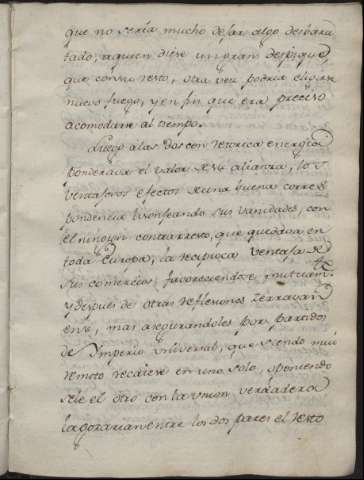 que no seria mucho dejar algo desbara
tado, a quien diese un gran despique,
que con su resto, otra vez podria elijirse
nuevo juego, y en fin que era preciso
acomodarse al tiempo.
Luego a las dos con retorica energia
ponderava el valor de su alianza, lo
ventajoso efectos de una buena corres
pondencia lisonjeando sus vanidades, con
el ningun contrarresto, que quedava en
toda Europa, la reciproca ventaja de
sus comercios, favoreciendose mutuamte
y despues de otras reflexiones zerravan
en asegurandoles por partidos
de Ymperio Universal, que siendo mui
remoto recaiese en uno solo, oponiendo
sele el otro con la union verdadera
la gozarian entre los dos pares el resto